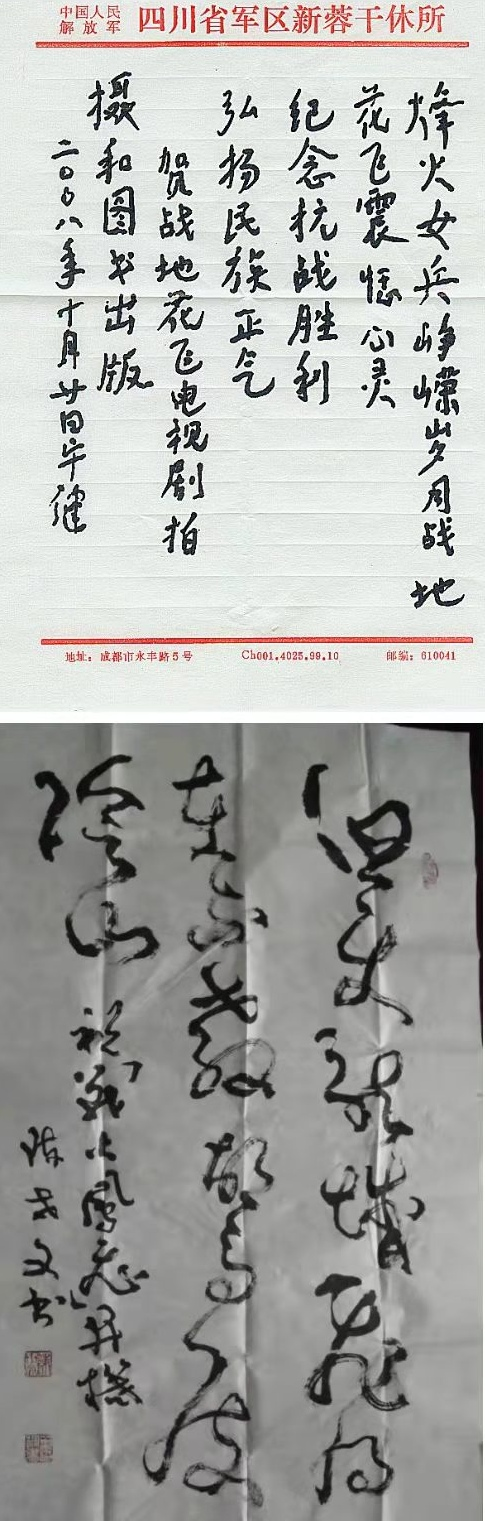 中国人民
解放军
四川省军区新蓉干休所
烽火女兵峥嵘岁月战地
花飞震憾心灵
纪念抗战胜利
弘扬民族正气
贺战地花飞电视剧拍
摄和图书出版
二〇〇八年十月廿日健
地址：成都市永丰路5号
Ch001.4025.99.10
邮编：610041
但使龍城飛将
在不教胡馬度
陰山
祝战火鳳开機
陈文书